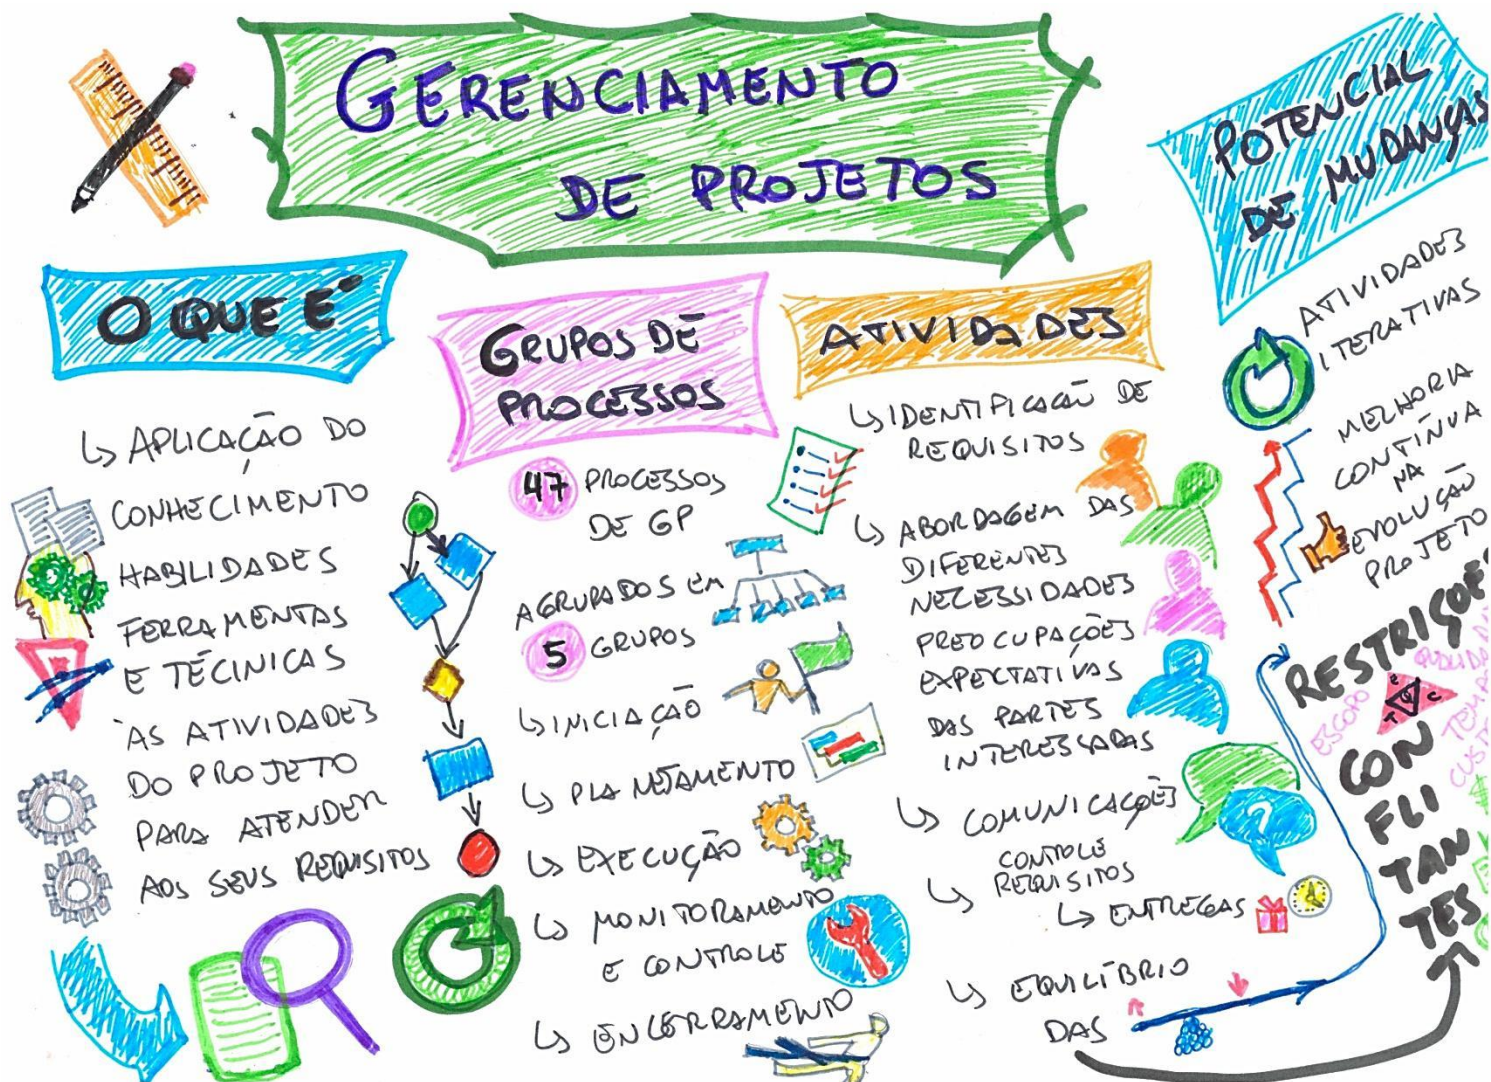 GERENCIAMENTO
DE PROJETOS
O QUE É
↳ APLICAÇÃO DO
CONHECIMENTO
HABILIDADES
FERRAMENTAS
E TÉCINICAS
ÀS ATIVIDADES
DO PROJETO
PARA ATENDER
AOS SEUS REQUISITOS
GRUPOS DE
PROCESSOS
47 PROCESSOS
DE GP
AGRUPADOS EM
5 GRUPOS
↳ INICIAÇÃO
↳ PLANEJAMENTO
↳ EXECUÇÃO
↳ MONITORAMENTO
E CONTROLE
↳ ENCERRAMENTO
ATIVIDADES
↳ IDENTIFICAÇÃO DE
REQUISITOS
↳ ABORDAGEM DAS
DIFERENTES
NECESSIDADES
PREOCUPAÇÕES
EXPECTATIVAS
DAS PARTES
INTERESSADAS
↳ COMUNICAÇÕES
↳ CONTROLE
REQUISITOS
↳ ENTREGAS
↳ EQUILÍBRIO
DAS
RESTRIÇÕES
ESCOPO
E
T C
CON
FLI
TAN
TES
POTENCIAL
DE MUDANÇAS
ATIVIDADES
ITERATIVAS
MELHORIA
CONTÍNUA
NA
EVOLUÇÃO
PROJETO